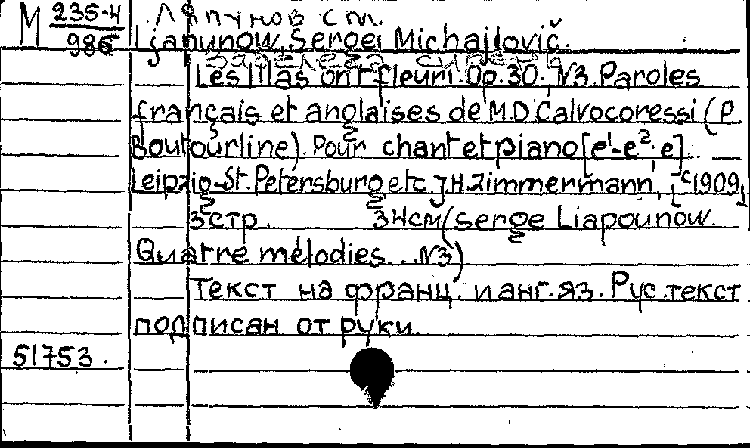 М 235-4/986
Ляпунов С.М.
Ljapunow, Sergei Michajlovič.
Les lilas ont fleuri. Op. 30. N3. Paroles
français et anglaises de M.D. Calvocoressi (P.
Boutourline). Pour chant et piano [e¹-e². e]. —
Leipzig-St. Petersburg etc. J.H. Zimmermann, [c1909]
3 стр. 34 см (Serge Liapounow.
Quatre mélodies... N3)
Текст на франц. и анг. яз. Рус. текст
подписан от руки.
51753.